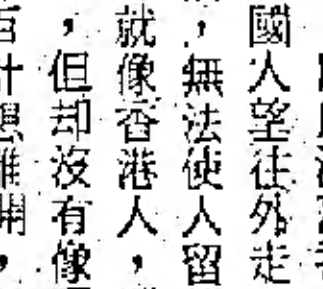 國人望往外走
，無法使人留
就像香港人，
，但却沒有像
計想離開，